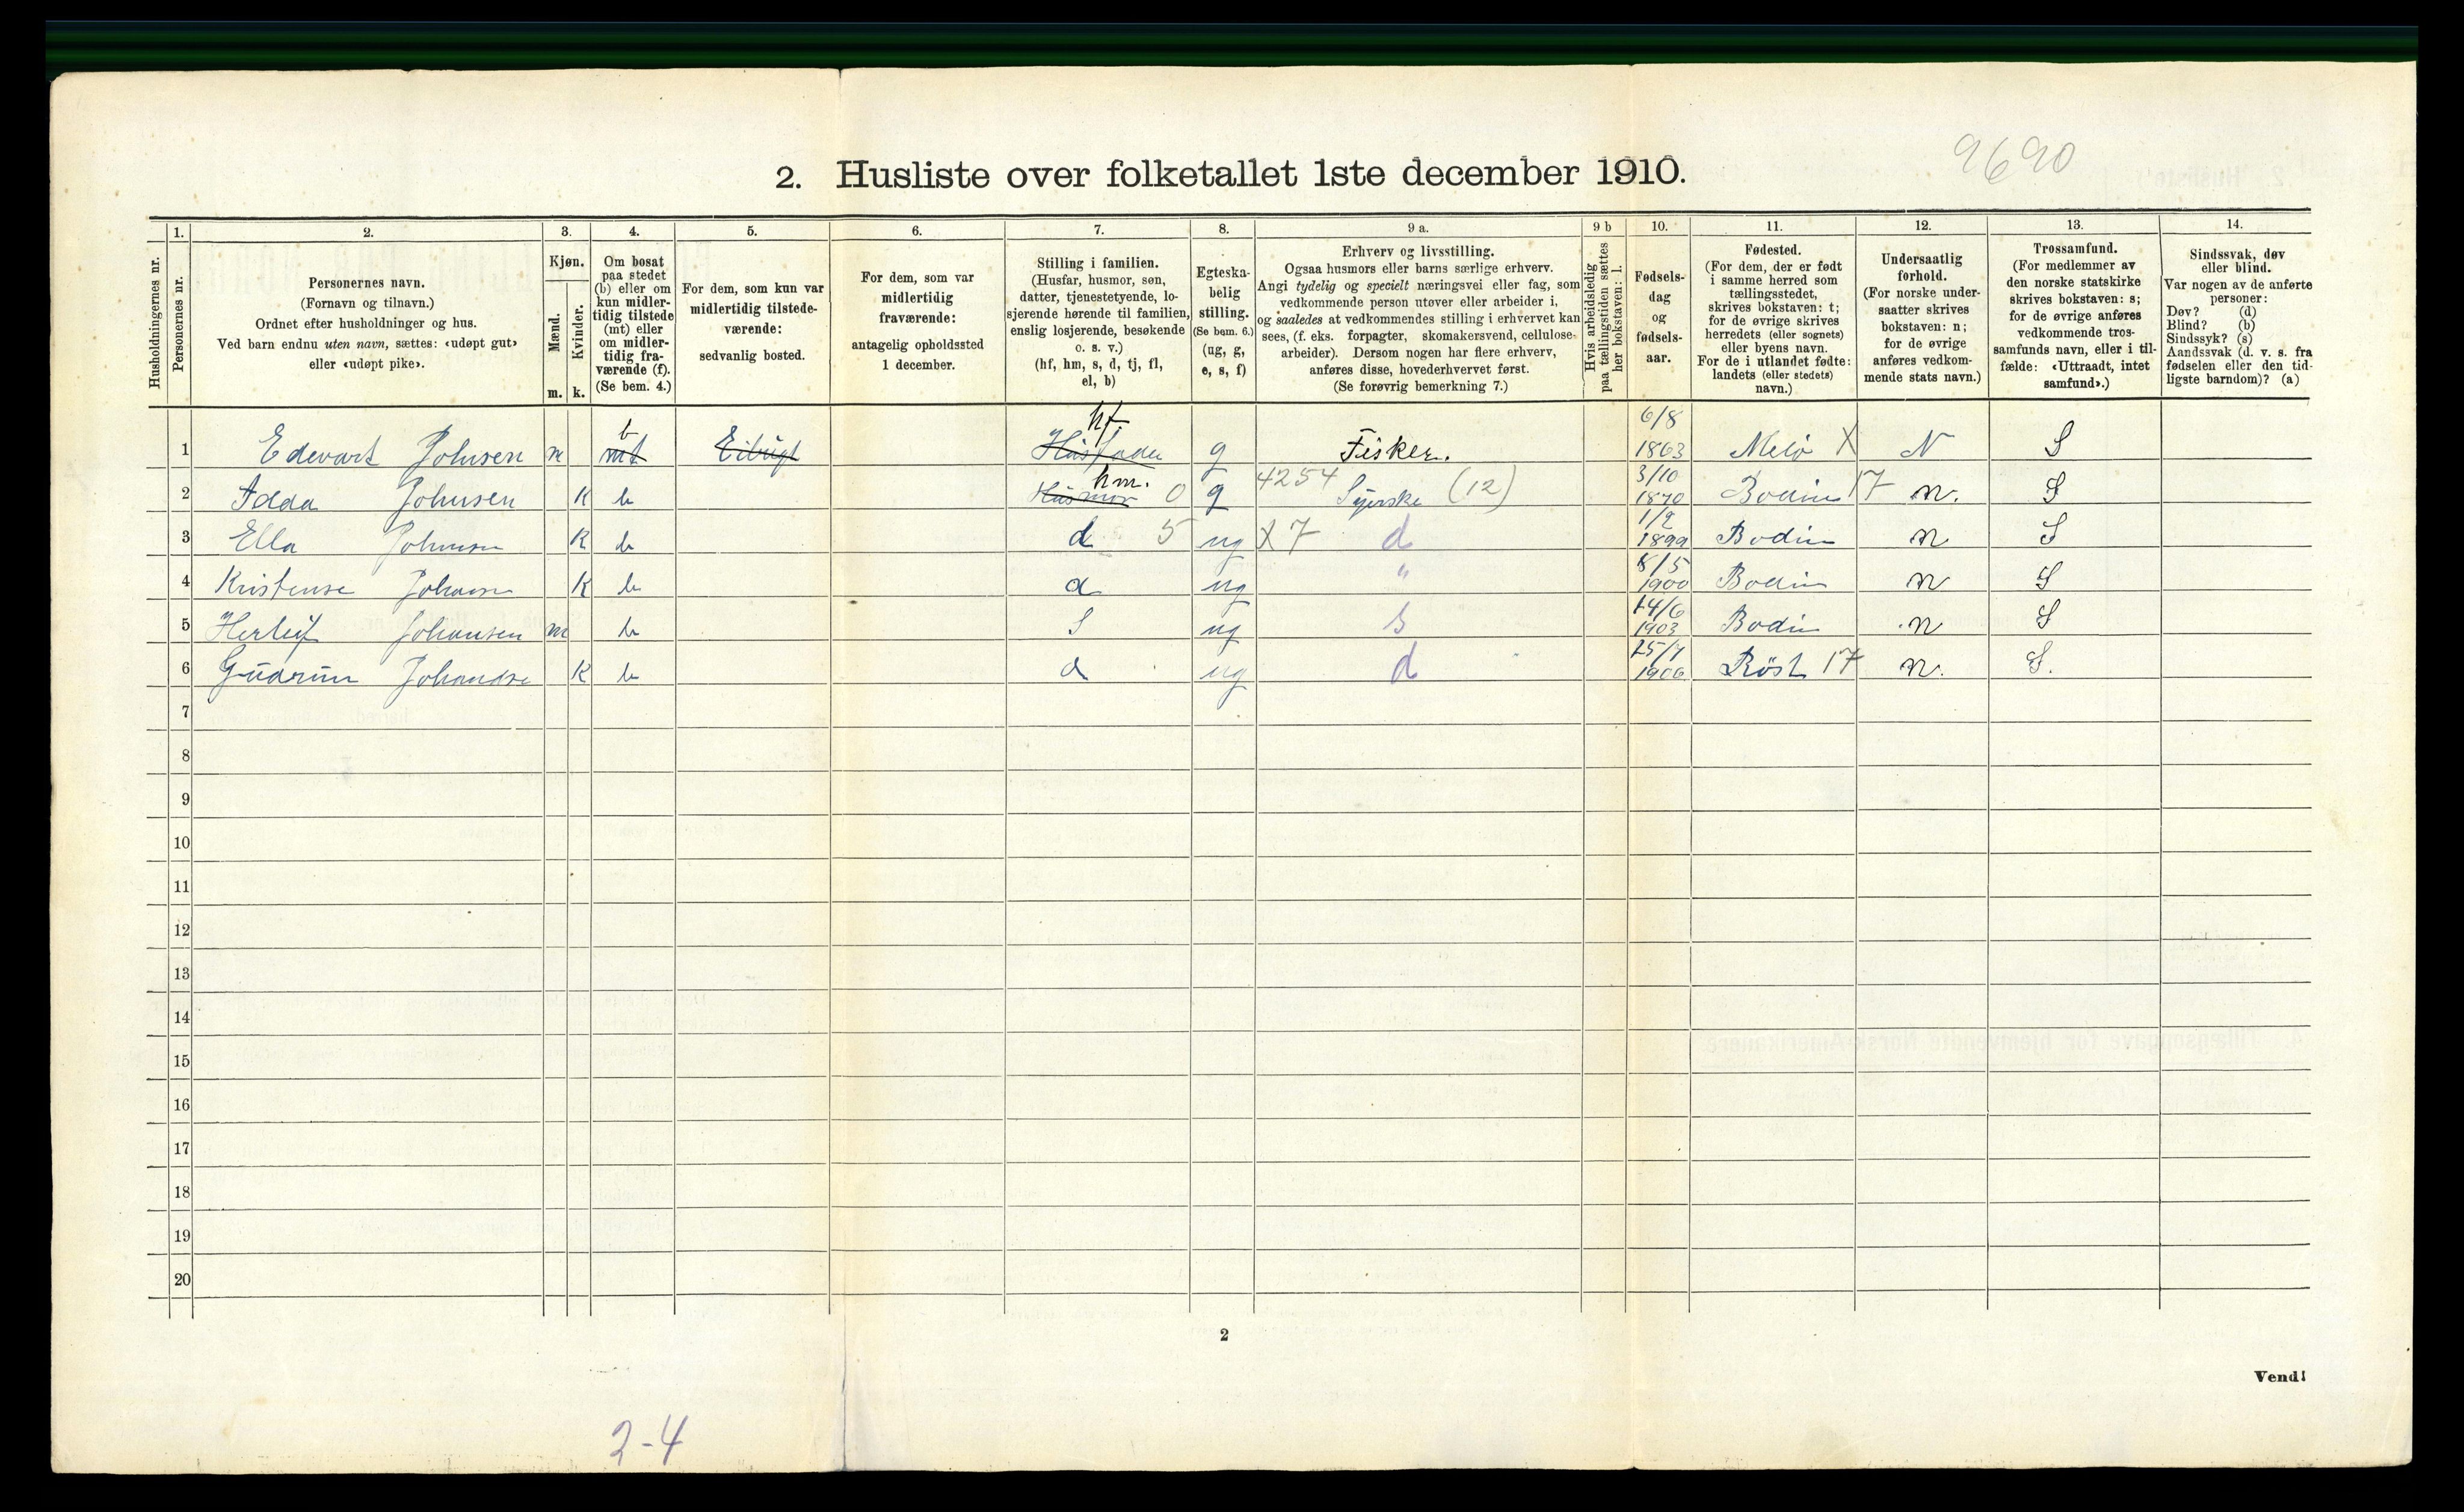 9690
2. Husliste over folketallet 1ste december 1910.
Husholdningernes nr.
1.
Personernes nr.
2.
Personernes navn.
(Fornavn og tilnavn.)
Ordnet efter husholdninger og hus.
Ved barn endnu uten navn, sættes: «udøpt gut»
eller «udøpt pike».
3.
Kjøn.
Mænd.
Kvinder.
m. k.
4.
Om bosat
paa stedet
(b) eller om
kun midler-
tidig tilstede
(mt) eller
om midler-
tidig fra-
værende (f).
(Se bem. 4.)
5.
For dem, som kun var
midlertidig tilstede-
værende:
sedvanlig bosted.
6.
For dem, som var
midlertidig
fraværende:
antagelig opholdssted
1 december.
7.
Stilling i familien.
(Husfar, husmor, søn,
datter, tjenestetyende, lo-
sjerende hørende til familien,
enslig losjerende, besøkende
o. s. v.)
(hf, hm, s, d, tj, fl,
el, b)
8.
Egteska-
belig
stilling.
(Se bem. 6.)
(ug, g,
e, s, f)
9 a.
Erhverv og livsstilling.
Ogsaa husmors eller barns særlige erhverv.
Angi tydelig og specielt næringsvei eller fag, som
vedkommende person utøver eller arbeider i,
og saaledes at vedkommendes stilling i erhvervet kan
sees, (f. eks. forpagter, skomakersvend, cellulose-
arbeider). Dersom nogen har flere erhverv,
anføres disse, hovederhvervet først.
(Se forøvrig bemerkning 7.)
9 b
Hvis arbeidsledig
paa tællingstiden sættes
her bokstaven: l.
10.
Fødsels-
dag
og
fødsels-
aar.
11.
Fødested.
(For dem, der er født
i samme herred som
tællingsstedet,
skrives bokstaven: t;
for de øvrige skrives
herredets (eller sognets)
eller byens navn.
For de i utlandet fødte:
landets (eller stedets)
navn.)
12.
Undersaatlig
forhold.
(For norske under-
saatter skrives
bokstaven: n;
for de øvrige
anføres vedkom-
mende stats navn.)
13.
Trossamfund.
(For medlemmer av
den norske statskirke
skrives bokstaven: s;
for de øvrige anføres
vedkommende tros-
samfunds navn, eller i til-
fælde: «Uttraadt, intet
samfund».)
14.
Sindssvak, døv
eller blind.
Var nogen av de anførte
personer:
Døv? (d)
Blind? (b)
Sindssyk? (s)
Aandssvak (d. v. s. fra
fødselen eller den tid-
ligste barndom)? (a)
b hf. 6/8
1 Edevart Johnsen m mt Husfader g Fisker. 1863 Melö X N S
hm. 4254 3/10
2 Adda Johnsen K b Husmor 0 g Syerske (12) 1870 Bodin 17 n. S
1/2
3 Ella Johnsen K b d 5 ug X 7 d 1899 Bodin n S
8/5
4 Kristense Johansn K b d ug " 1900 Bodin n S
14/6
5 Herleif Johansen m b S ug s 1903 Bodin n S
15/7
6 Gudrun Johanse K b d ug d 1906 Röst 17 n. S.
7
8
9
10
11
12
13
14
15
16
17
18
19
20
2
Vend!
2-4